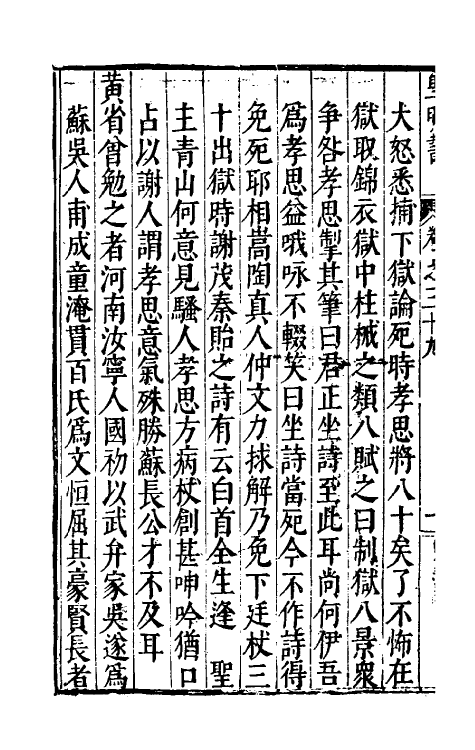 大怒悉捕下獄論死時孝思將八十矣了不怖在
獄取錦衣獄中柱械之類八賦之曰制獄八景衆
爭咎孝思掣其筆曰君正坐詩至此耳尚何伊吾
爲孝思益哦咏不輟笑曰坐詩當死今不作詩得
免死耶相嵩陶真人仲文力捄解乃免下廷杖三
十出獄時謝茂秦貽之詩有云白首全生逢　聖
主青山何意見騷人孝思方病杖創甚呻吟猶口
占以謝人謂孝思意氣殊勝蘇長公才不及耳
黄省曾勉之者河南汝寧人國初以武弁家吳遂爲
蘇吳人甫成童淹貫百氏爲文恒屈其豪賢長者
卷之三十九